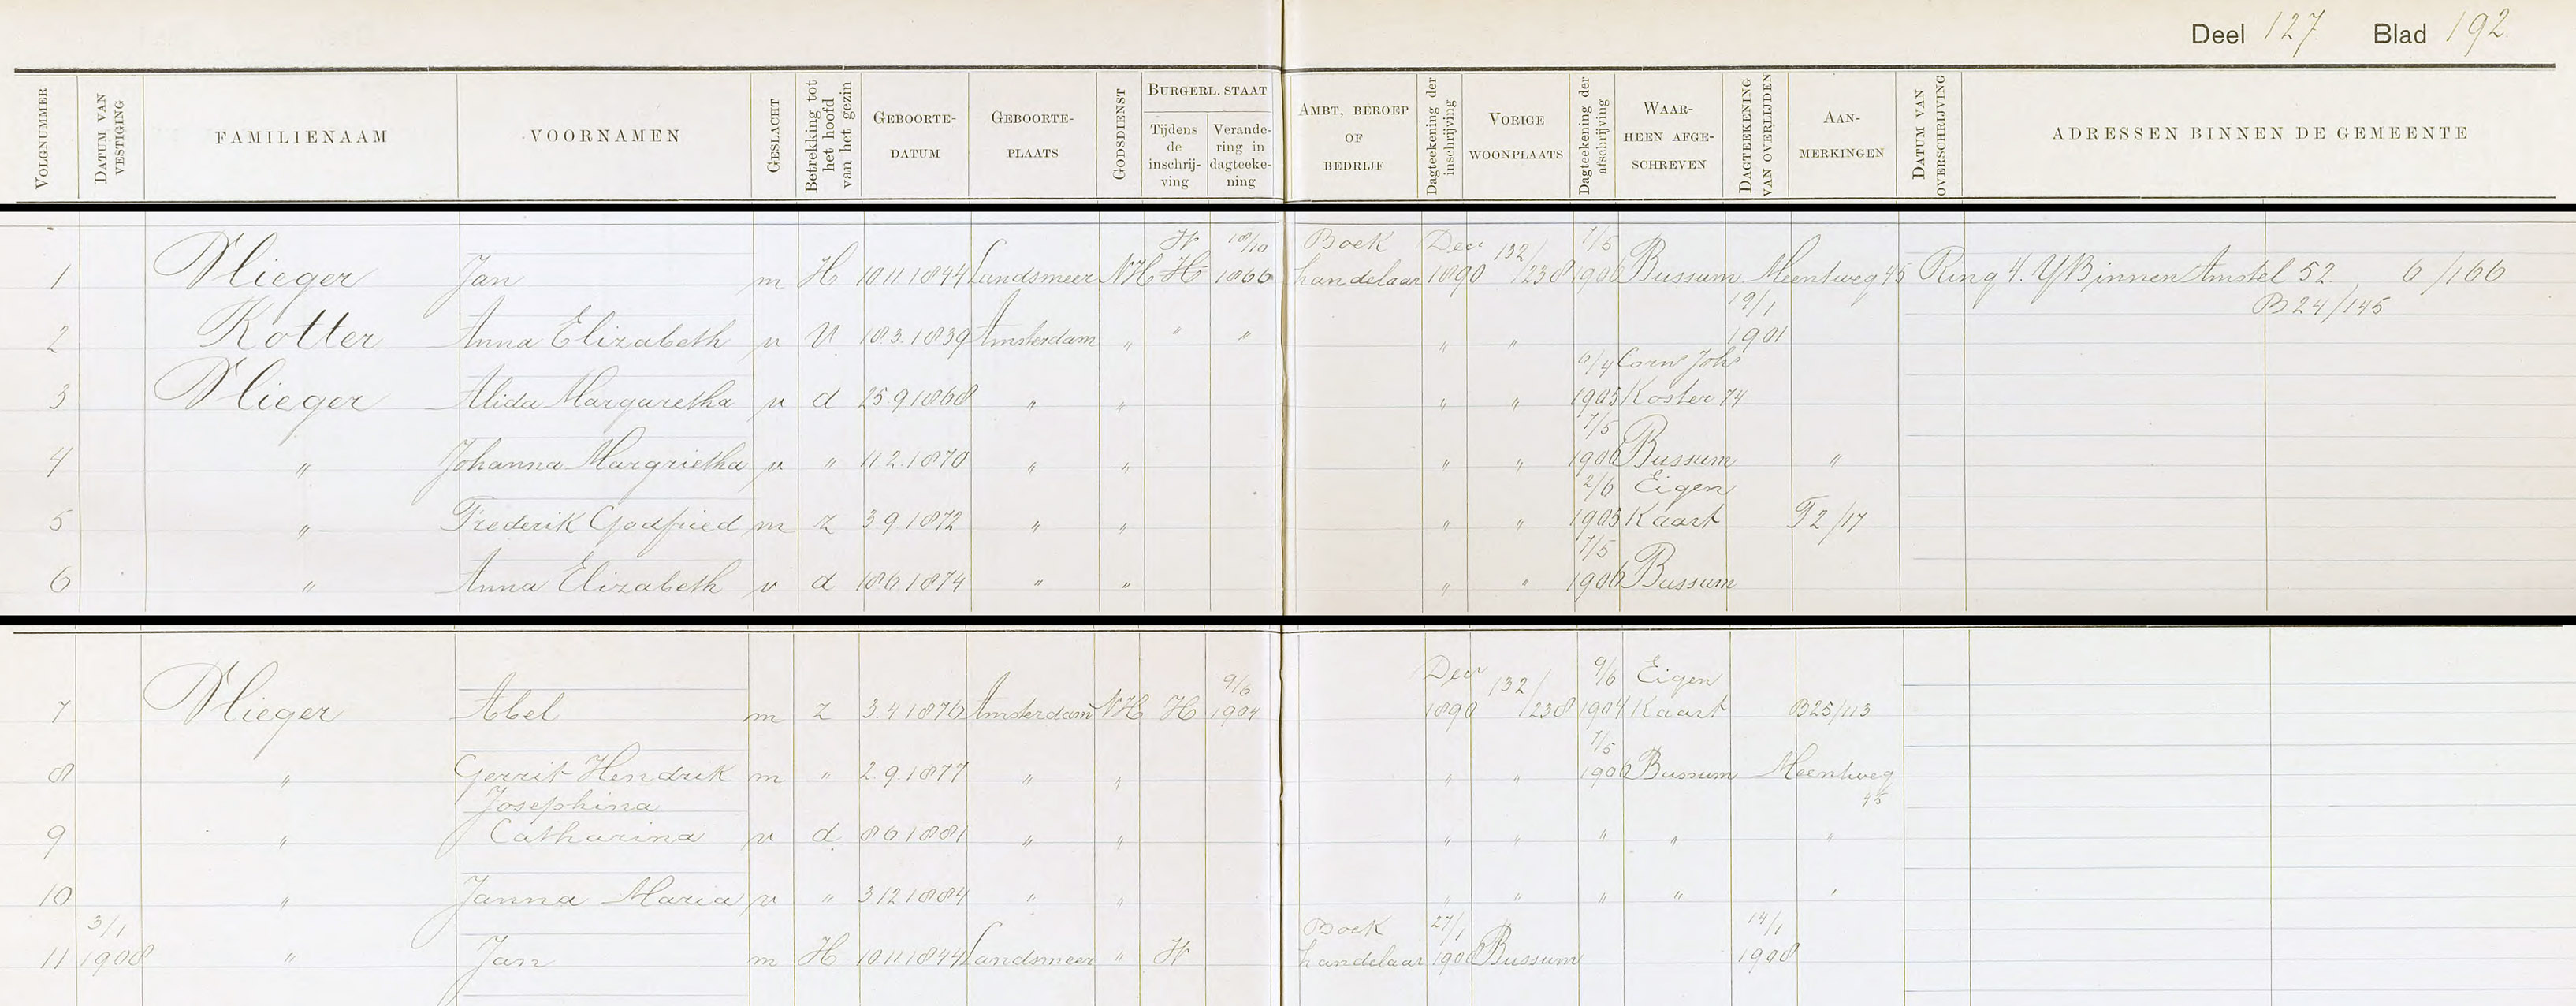 Deel 127 Blad 192.
VOLGNUMMER DATUM VAN VESTIGING FAMILIENAAM VOORNAMEN GESLACHT Betrekking tot het hoofd van het gezin GEBOORTE-DATUM GEBOORTE-PLAATS GODSDIENST BURGERL. STAAT Tijdens de inschrij-ving Verande-ring in dagteeke-ning AMBT, BEROEP OF BEDRIJF Dagteekening der inschrijving VORIGE WOONPLAATS Dagteekening der afschrijving WAAR-HEEN AFGE-SCHREVEN DAGTEEKENING VAN OVERLIJDEN AAN-MERKINGEN DATUM VAN OVERSCHRIJVING ADRESSEN BINNEN DE GEMEENTE
W 18/10 Boek Decr 132/ 7/5
1 Vlieger Jan m H 10.11.1844 Landsmeer NH H 1866 handelaar 1890 /238 1906 Bussum Meentweg 45 Ring 4. Y Binnen Amstel 52. 6/166
19/1 B24/145
2 Kotter Anna Elizabeth v V 18.3.1839 Amsterdam " " " " " 1901
6/4 Corns Johs
3 Vlieger Alida Margaretha v d 25.9.1868 " " " " 1905 Koster 74
7/5
4 " Johanna Margrietha v " 11.2.1870 " " " " 1906 Bussum "
2/6 Eigen
5 " Frederik Godfried m z 3.9.1872 " " " " 1905 Kaart F2/17
7/5
6 " Anna Elizabeth v d 18.6.1874 " " " " 1906 Bussum
9/6 Decr 132/ 9/6 Eigen
7 Vlieger Abel m z 3.4.1876 Amsterdam NH H 1904 1890 /238 1904 Kaart B25/113
7/5
8 " Gerrit Hendrik m " 2.9.1877 " " " " 1906 Bussum Meentweg
Josephina 45
9 " Catharina v d 8.6.1881 " " " " " " "
10 " Janna Maria v " 3.12.1884 " " " " " " "
3/1 Boek 27/1 14/1
11 1908 " Jan m H 10.11.1844 Landsmeer " W handelaar 1908 Bussum 1908